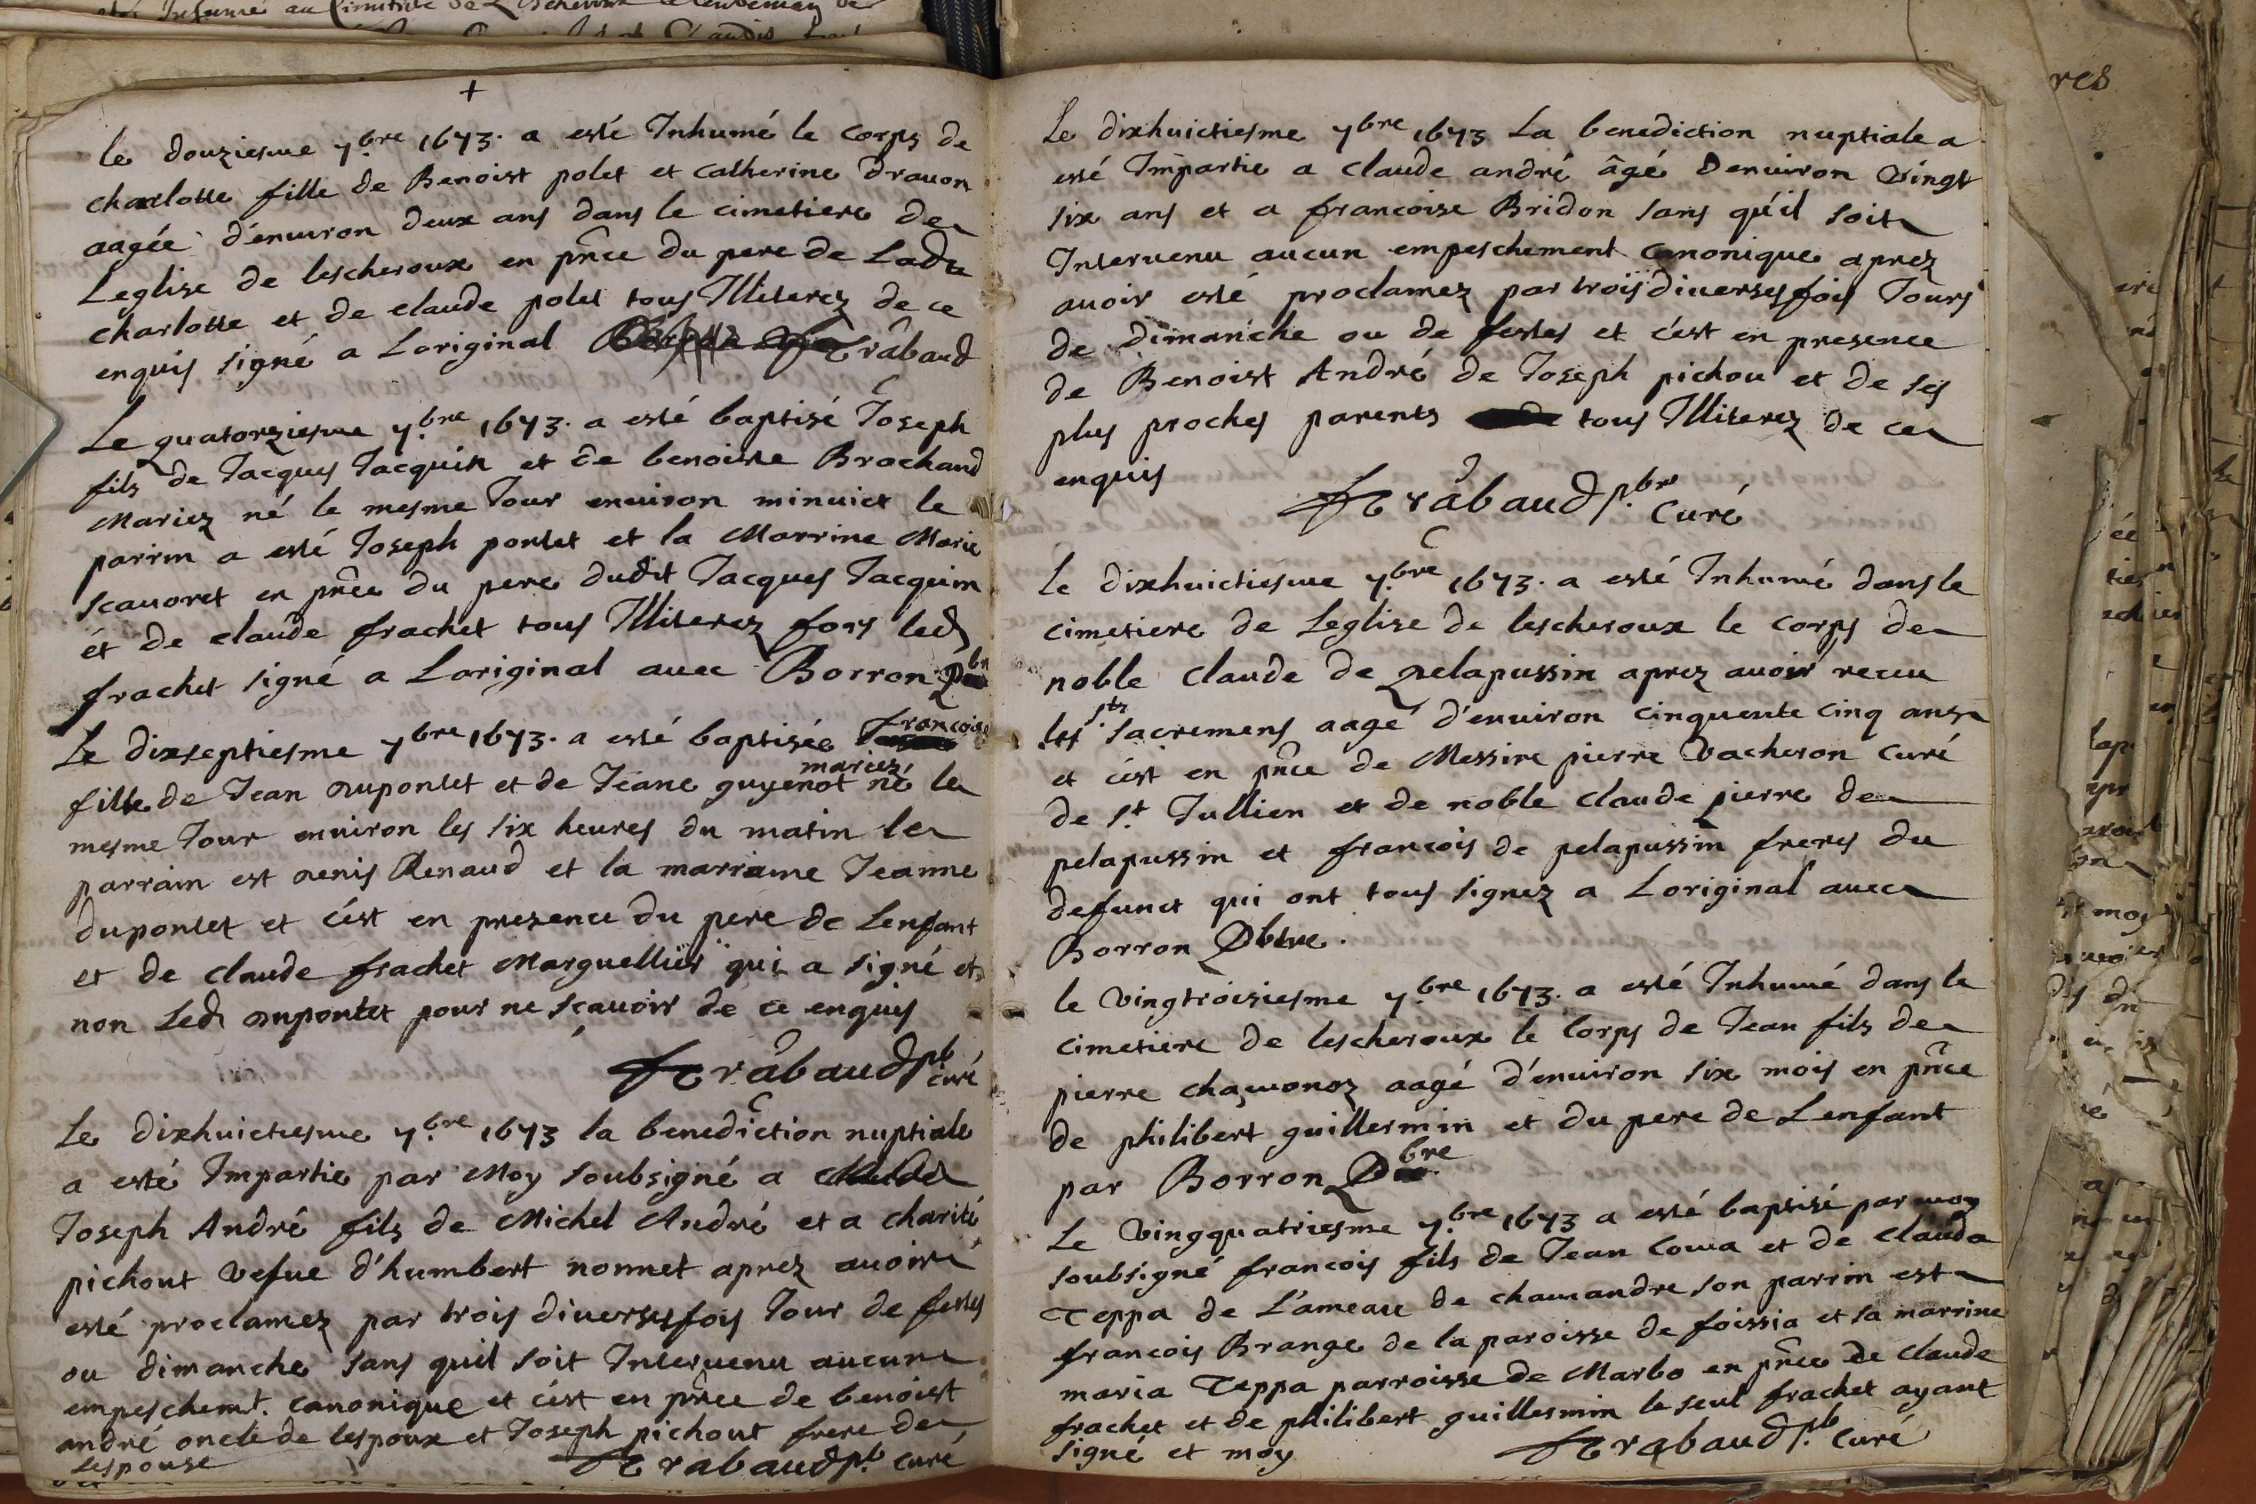 +
le douziesme 7.bre 1673. a esté Inhumé le corps de
charlotte fille de Benoist polet et catherine drauon
aagée d'enuiron deux ans dans le cimetiere de
Leglise de lescheroux en pñce du pere de Ladte
charlotte et de claude polet tous Illiterez de ce
enquis signé a Loriginal Trabaud
Le quatorziesme 7.bre 1673. a esté baptisé Joseph
fils de Jacques Jacquin et de benoiste Brochand
Mariez né le mesme Jour enuiron minuict le
parrin a esté Joseph pontet et la Marrine Marie
scauoret en pñce du pere dudit Jacques Jacquin
et de claude frachet tous Illiterez fors led
frachet signé a Loriginal auec Borron pbre
Le dixseptiesme 7bre 1673. a esté baptisée francoise
fille de Jean dupontet et de Jeane guyenot mariez né le
mesme Jour enuiron les six heures du matin le
parrain est denis Renaud et la marraine Jeanne
dupontet et c'est en presence du pere de Lenfant
et de claude frachet Marguellier qui a signé et
non Led dupontet pour ne scauoir de ce enquis
Trabaud pb
curé
Le dixhuictiesme 7.bre 1673 la benediction nuptiale
a esté Impartie par Moy soubsigné a
Joseph André fils de Michel André et a charité
pichout vefue d'humbert nonnet aprez auoir
esté proclamez par trois diuerses fois Jour de festes
ou dimanche sans quil soit Interuenu aucun
empeschemt. canonique et c'est en pñce de benoist
andré oncle de lespoux et Joseph pichout frere de
Lespouse
Trabaud pb curé
Le dixhuictiesme 7bre 1673 La benediction nuptiale a
esté Impartie a claude andré âgé Denuiron vingt
six ans et a francoise Bridon sans qu'il soit
Interuenu aucun empeschement canonique aprez
auoir esté proclamez par trois diuerses fois Jours
de dimanche ou de festes et c'est en presence
de Benoist André de Joseph pichou et de ses
plus proches parents tous Illiterez de ce
enquis
Trabaud p.bre
Curé
Le dixhuictiesme 7.bre 1673. a esté Inhumé dans le
cimetiere de Leglise de lescheroux le corps de
noble claude de pelapussin aprez auoir receu
les sts sacremens aagé d'enuiron cinquente cinq ans
et c'est en pñce de Messire pierre vacheron curé
de st. Jullien et de noble claude pierre de
pelapussin et francois de pelapussin freres du
defunct qui ont tous signez a Loriginal auec
Borron pbtre.
le vingtroisiesme 7.bre 1673. a esté Inhumé dans le
cimetiere de lescheroux le corps de Jean fils de
pierre chamonoz aagé d'enuiron six mois en pñce
de philibert guillermin et du pere de Lenfant
par Borron pbre
Le vingquatriesme 7.bre 1673 a esté baptisé par moy
soubsigné francois fils de Jean Cowa et de clauda
Teppa de L'ameau de chamandre son parrin est
francois Brange de la paroisse de foissia et sa marrine
maria Teppa parroisse de Marbo en pñce de claude
frachet et de philibert guillermin le seul frachet ayant
signé et moy
Trabaud p.b Curé